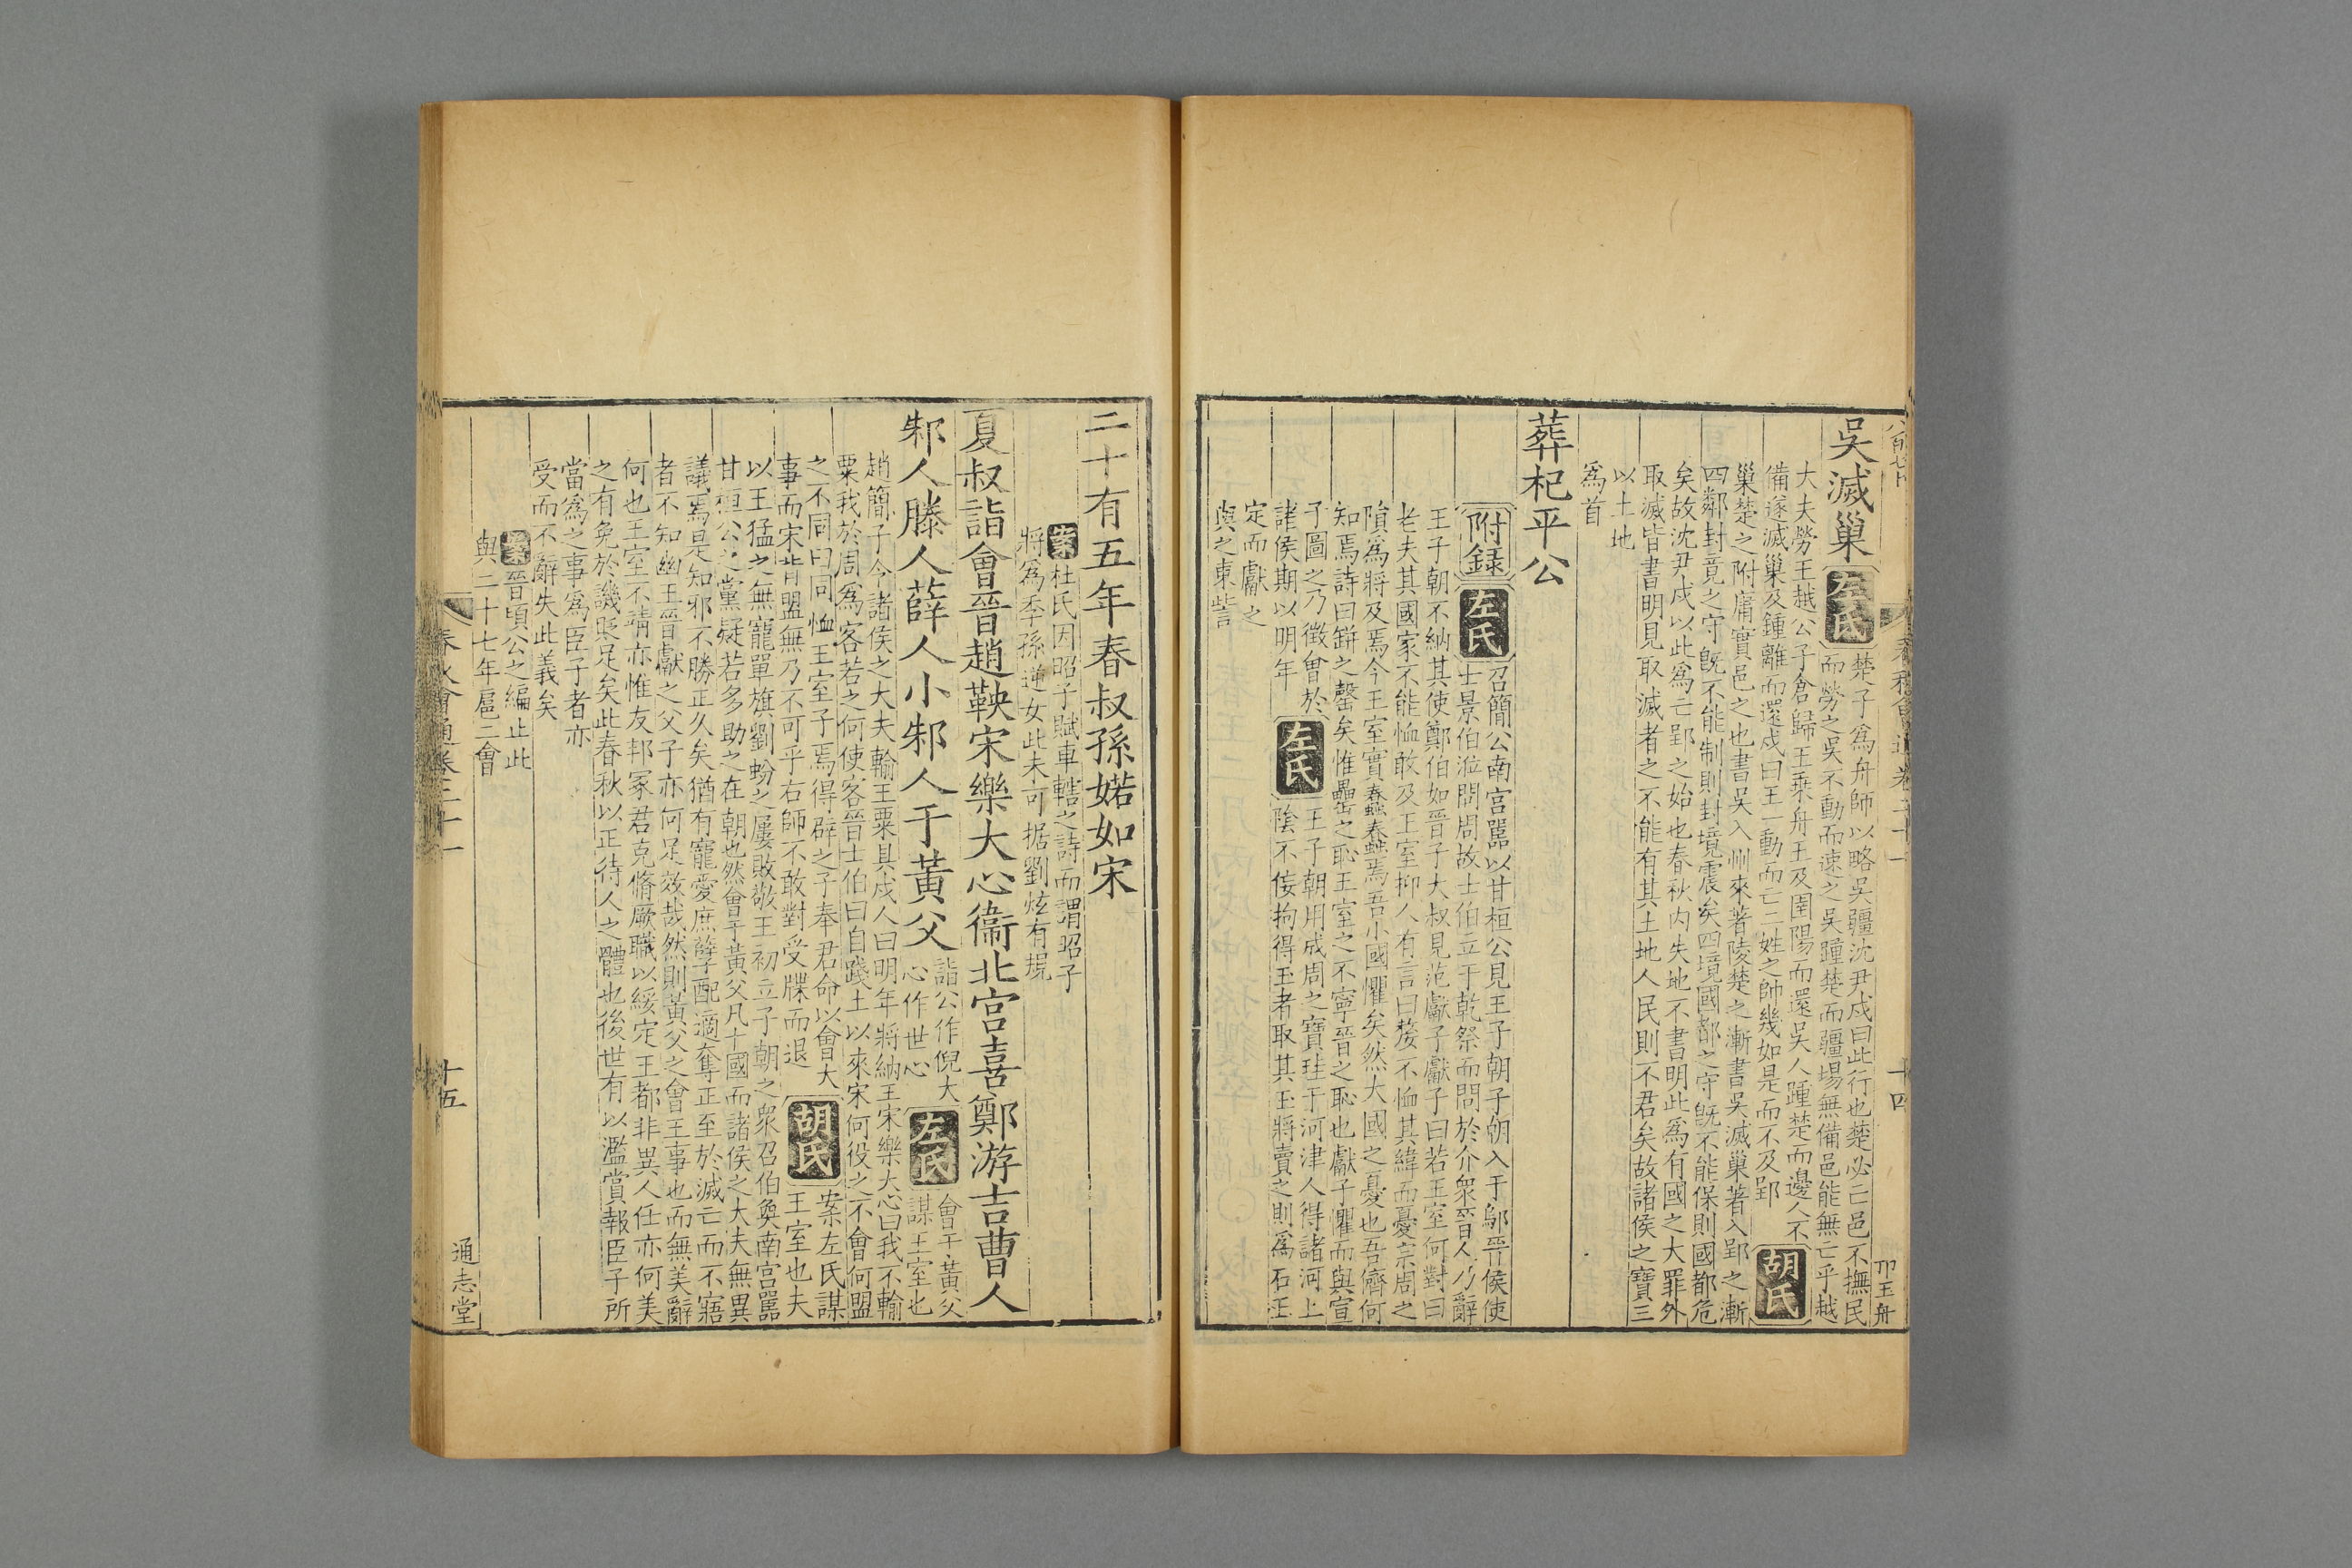 吳滅巢
左氏
楚子爲舟師以略吳疆沈尹戍曰此行也楚必亡邑不撫民
而勞之吳不動而速之吳踵楚而疆埸無備邑能無亡乎越
大夫勞王越公子倉歸王乘舟王及圉陽而還吳人踵楚而邊人不
備遂滅巢及鍾離而還戍曰王一動而亡二姓之帥幾如是而不及郢
胡氏
巢楚之附庸實邑之也書吳入州來著陵楚之漸書吳滅巢著入郢之漸
四鄰封竟之守旣不能制則封境震矣四境國都之守旣不能保則國都危
矣故沈尹戍以此爲亡郢之始也春秋內失地不書明此爲有國之大罪外
取滅皆書明見取滅者之不能有其土地人民則不君矣故諸侯之寶三
以土地
爲首
葬杞平公
附錄
左氏
召簡公南宮嚚以甘桓公見王子朝子朝入于鄔晉侯使
士景伯涖問周故士伯立于乾祭而問於介衆晉人乃辭
王子朝不納其使鄭伯如晉子大叔見范獻子獻子曰若王室何對曰
老夫其國家不能恤敢及王室抑人有言曰嫠不恤其緯而憂宗周之
隕爲將及焉今王室實蠢蠢焉吾小國懼矣然大國之憂也吾儕何
知焉詩曰缾之罄矣惟罍之恥王室之不寧晉之恥也獻子懼而與宣
子圖之乃徵會於
諸侯期以明年
左氏
王子朝用成周之寶珪于河津人得諸河上
陰不佞拘得玉者取其玉將賣之則爲石王
定而獻之
與之東訾
十四
二十有五年春叔孫婼如宋
案
杜氏因昭子賦車轄之詩而謂昭子
將爲季孫逆女此未可据劉炫有規
夏叔詣會晉趙鞅宋樂大心衞北宮喜鄭游吉曹人
邾人滕人薛人小邾人于黃父
詣公作倪大
心作世心
左氏
會于黃父
謀王室也
趙簡子令諸侯之大夫輸王粟具戍人曰明年將納王宋樂大心曰我不輸
粟我於周爲客若之何使客晉士伯曰自踐土以來宋何役之不會何盟
之不同曰同恤王室子焉得辟之子奉君命以會大
事而宋背盟無乃不可乎右師不敢對受牒而退
胡氏
案左氏謀
王室也夫
以王猛之無寵單旗劉蚡之屢敗敬王初立子朝之衆召伯奐南宮嚚
甘桓公之黨疑若多助之在朝也然會于黃父凡十國而諸侯之大夫無異
議焉是知邪不勝正久矣猶有寵愛庶孽配適奪正至於滅亡而不寤
者不知幽王晉獻之父子亦何足效哉然則黃父之會王事也而無美辭
何也王室不靖亦惟友邦冢君克脩厥職以綏定王都非異人任亦何美
之有免於譏貶足矣此春秋以正待人之體也後世有以濫賞報臣子所
當爲之事爲臣子者亦
受而不辭失此義矣
案
晉頃公之編止此
與二十七年扈二會
春秋會通卷二十一
十五
通志堂